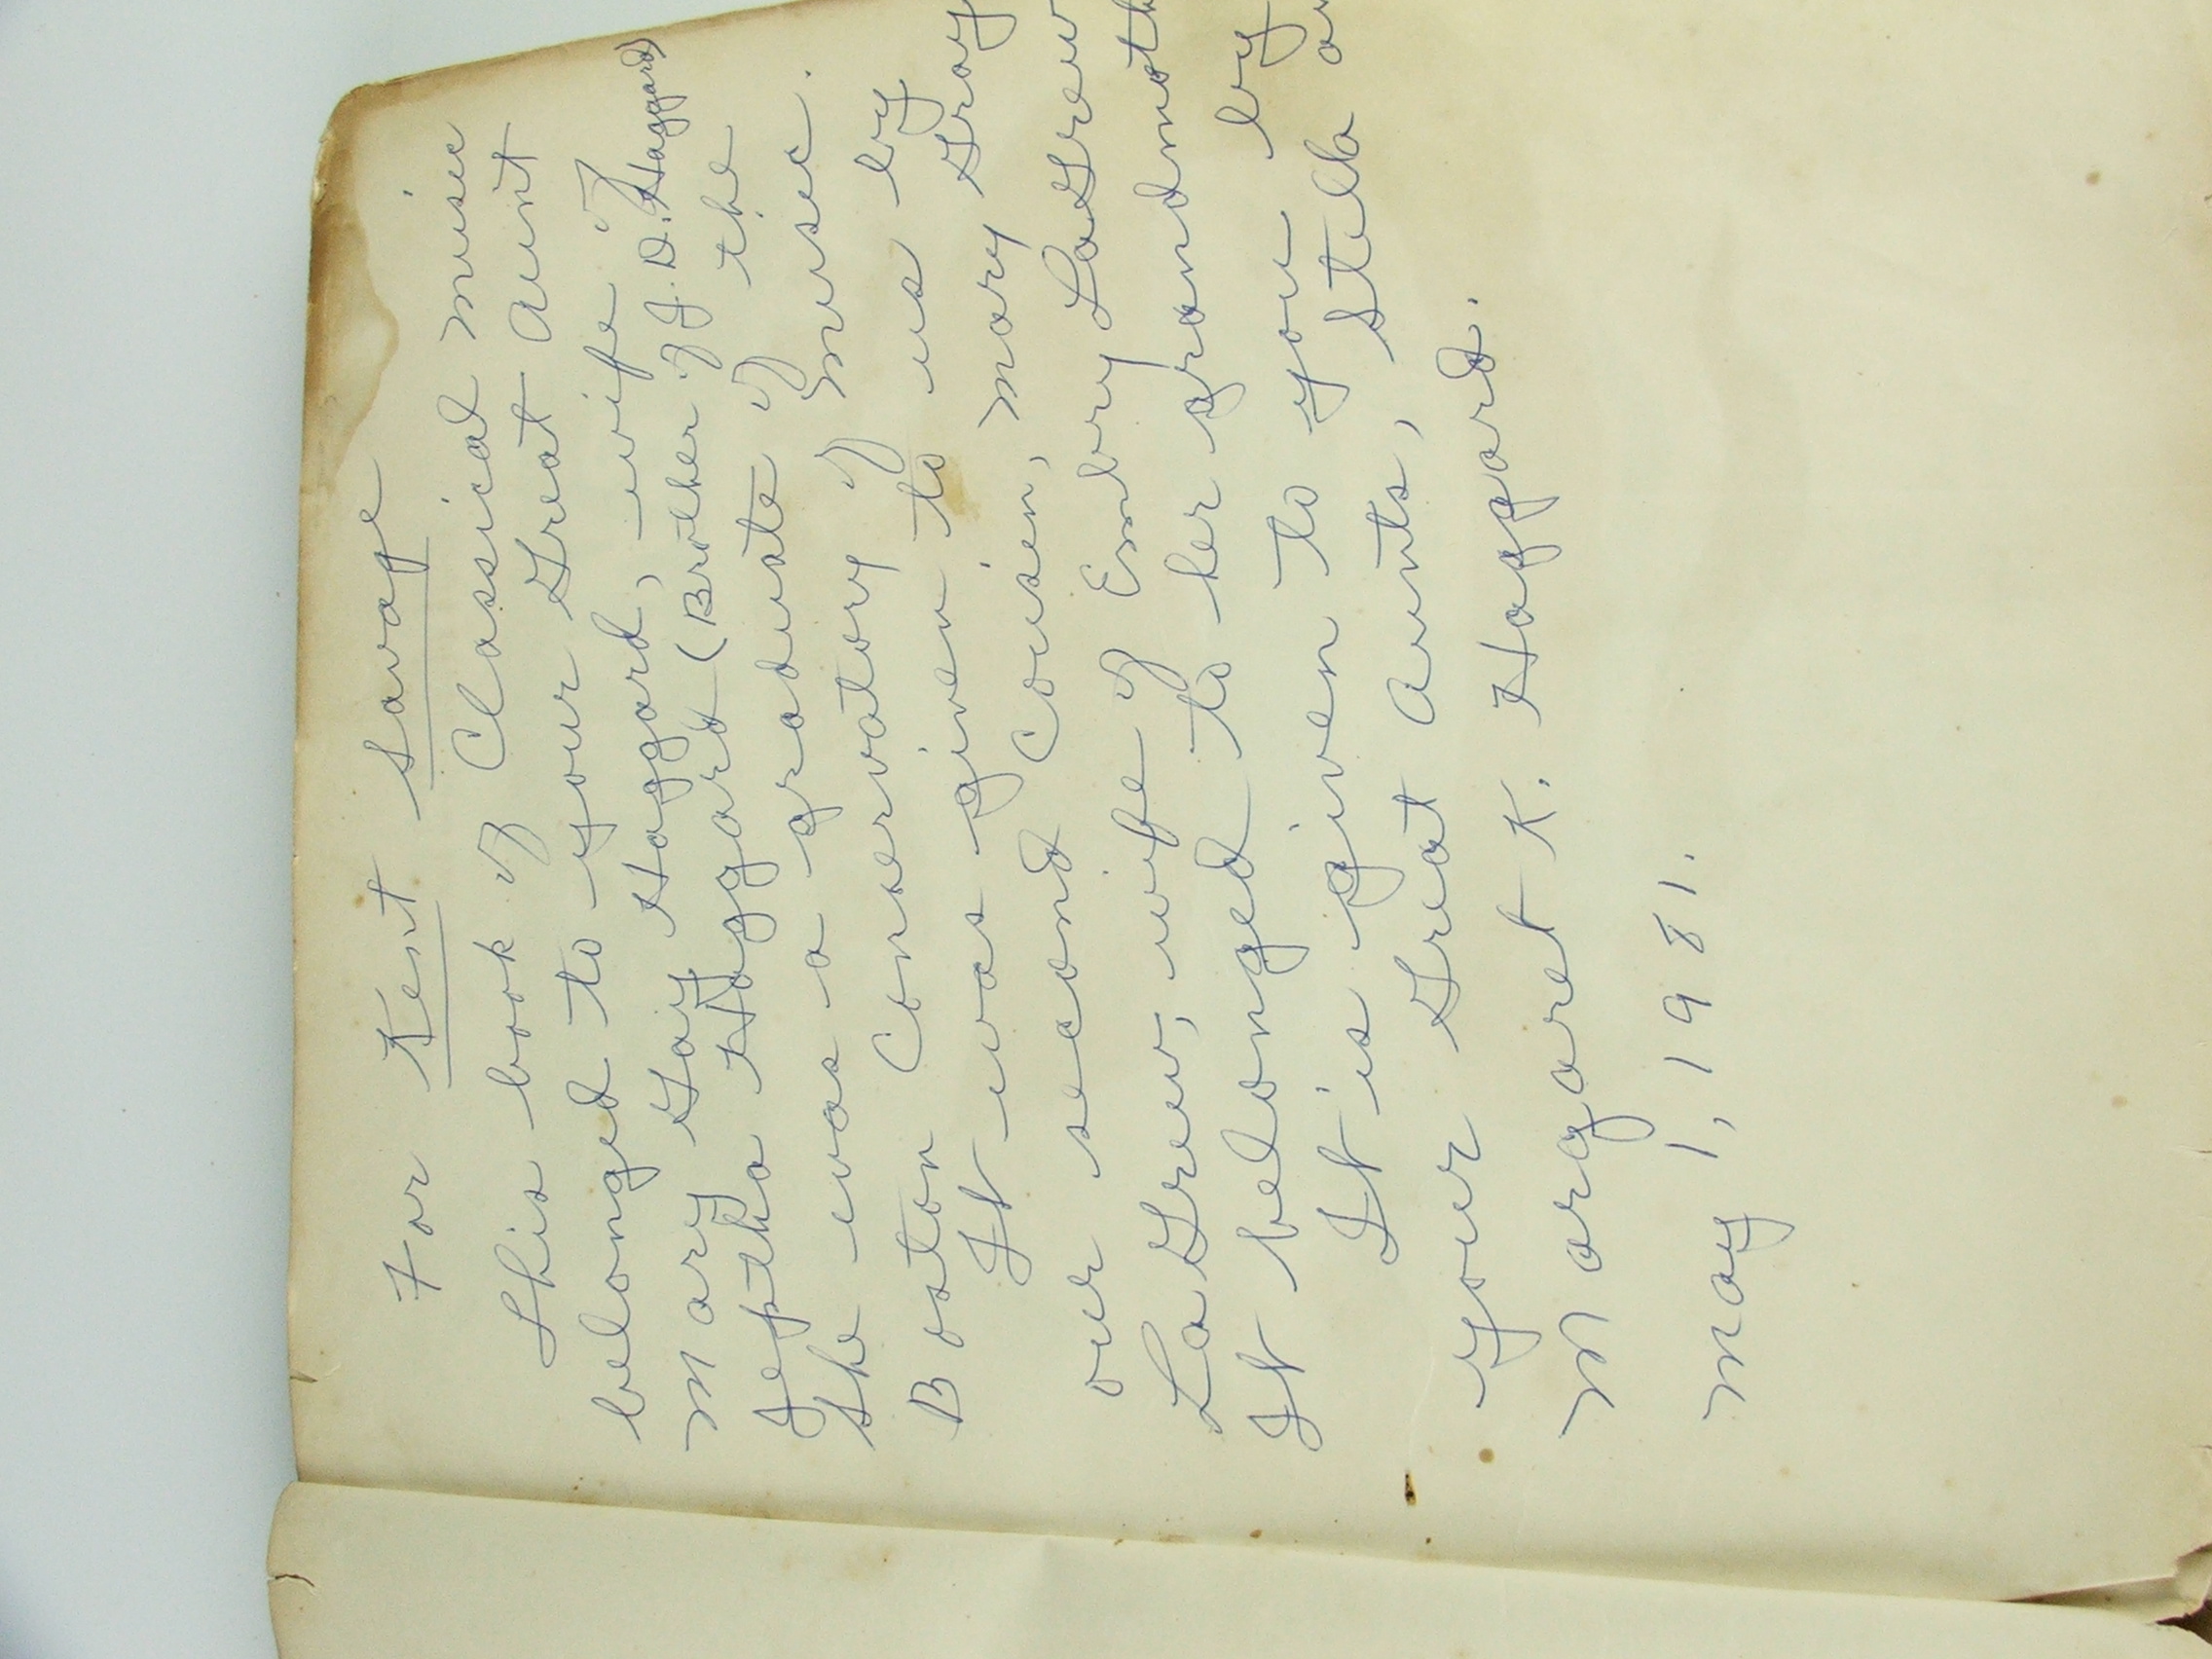 For Kent Savage
This book of Classical music
belonged to your Great Aunt
Mary Gay Haggard, wife of
Jeptha Haggard (Brother of J. D. Haggard)
She was a graduate of the
Boston Conservatory of Music.
It was given to us by
our second Cousin, Mary Gray
LaGrew, wife of Embry LaGrew
It belonged to her grandmoth
It is given to you by
your Great Aunts, Stella
Margaret K. Haggard.
May 1, 1981.